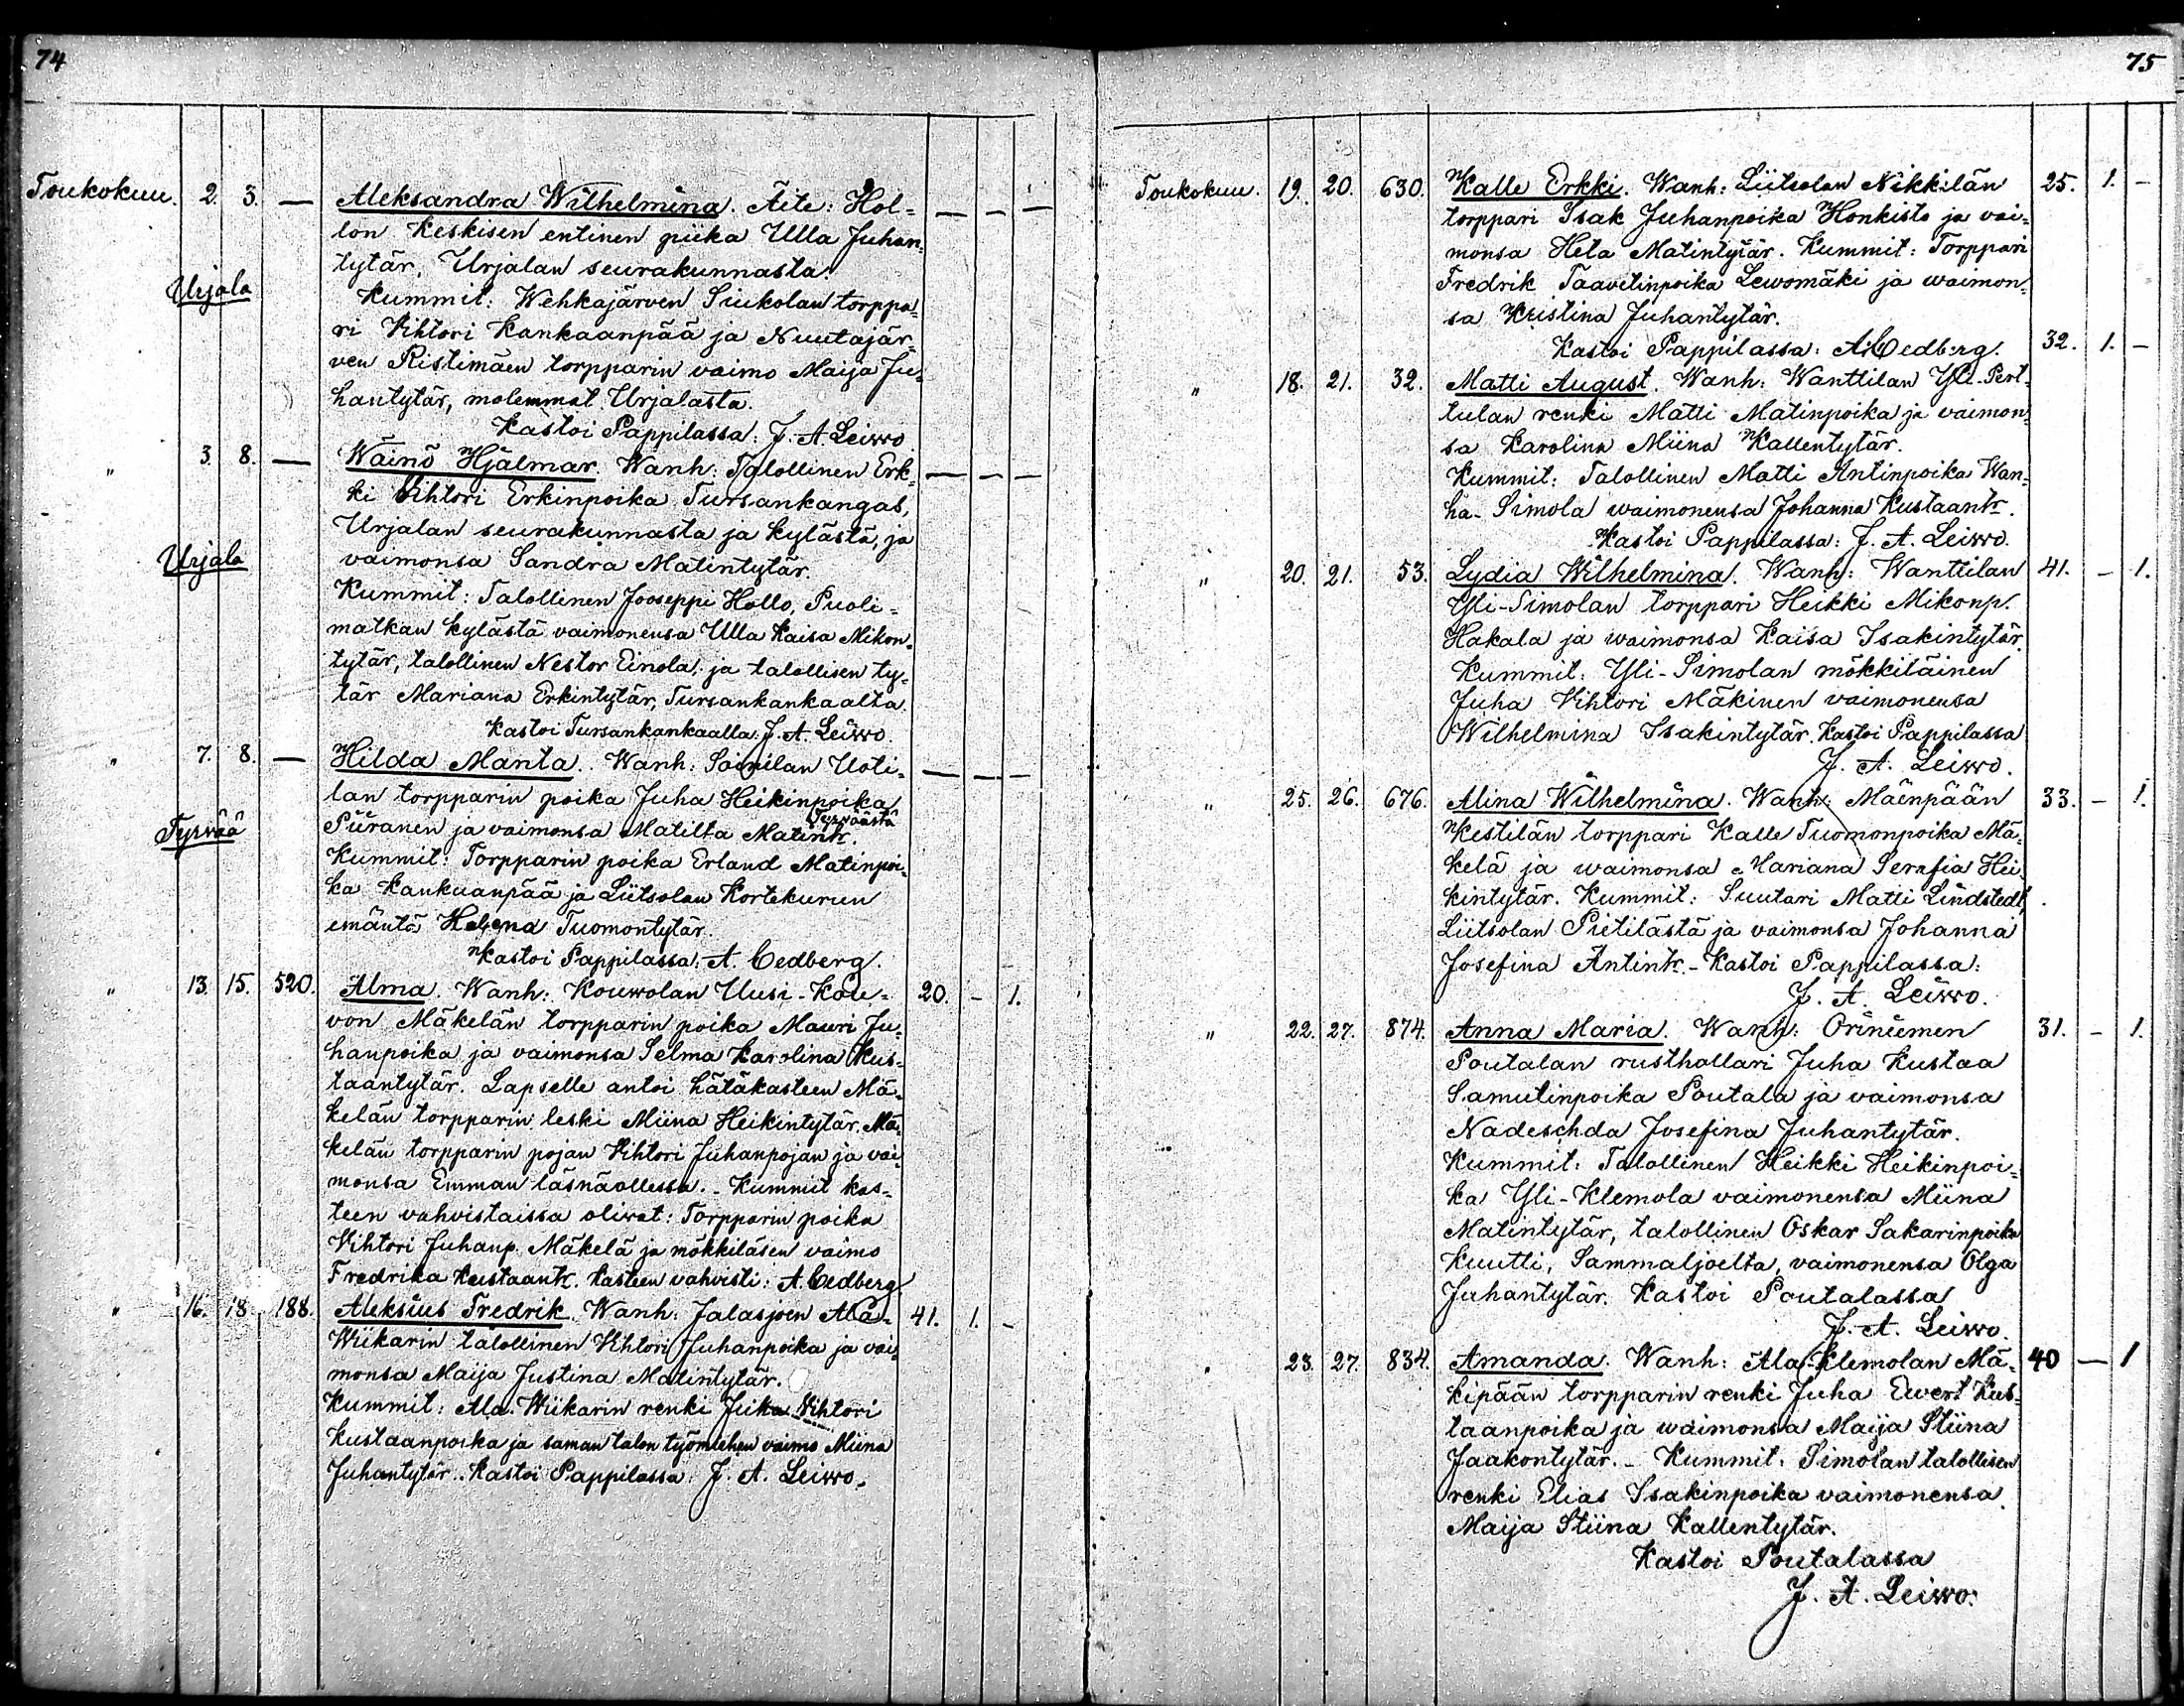 74
Toukokuu. 2. 3. — Aleksandra Wilhelmina. Äite: Hol= — — —
lon Keskisen entinen piika Ulla Juhan=
tytär, Urjalan seurakunnasta.
Urjala
Kummit: Wehkajärven Siukolan torppa=
ri Vihtori Kankaanpää ja Nuutajär=
ven Ristimäen torpparin vaimo Maija Ju=
hantytär, molemmat Urjalasta.
Kastoi Pappilassa: J. A. Leivvo
„ 3. 8. — Wäinö Hjalmar. Wanh: Talollinen Erk= — — —
ki Vihtori Erkinpoika Tursankangas,
Urjalan seurakunnasta ja kylästä, ja
Urjala
vaimonsa Sandra Matintytär.
Kummit: Talollinen Jooseppi Hollo, Puoli=
matkan kylästä vaimonensa Ulla Kaisa Mikon=
tytär, talollinen Nestor Einola, ja talollisen ty=
tär Mariana Erkintytär, Tursankankaalta.
Kastoi Tursankankaalla: J. A. Leivvo.
„ 7. 8. — Hilda Manta. Wanh: Soinilan Uoti= — — —
lan torpparin poika Juha Heikinpoika
Tyrväästä
Tyrvää
Piiranen ja vaimonsa Matilta Matintr.
Kummit: Torpparin poika Erland Matinpoi=
ka Kankaanpää ja Liitsolan Kortekurun
emäntä Helena Tuomontytär.
Kastoi Pappilassa: A. Cedberg.
„ 13. 15. 520. Alma. Wanh: Kouwolan Uusi-Kou= 20. – 1.
von Mäkelän torpparin poika Mauri Ju=
hanpoika ja vaimonsa Selma Karolina Kus=
taantytär. Lapselle antoi hätäkasteen Mä=
kelän torpparin leski Miina Heikintytär, Mä=
kelän torpparin pojan Vihtori Juhanpojan ja vai=
monsa Emman läsnäollessa. – Kummit kas=
teen vahvistaissa oliwat: Torpparin poika
Vihtori Juhanp. Mäkelä ja mökkiläisen vaimo
Fredrika Kustaantr. Kasteen vahvisti: A. Cedberg
„ 16. 18. 188. Aleksius Fredrik. Wanh: Jalasjoen Ala= 41. 1. –
Wiikarin talollinen Vihtori Juhanpoika ja vai=
monsa Maija Justina Matintytär.
Kummit: Ala-Wiikarin renki Juha Vihtori
Kustaanpoika ja saman talon työmiehen vaimo Miina
Juhantytär. Kastoi Pappilassa: J. A. Leivvo.
75
Toukokuu. 19. 20. 630. Kalle Erkki. Wanh: Liitsolan Nikkilän 25. 1. –
torppari Isak Juhanpoika Honkisto ja vai=
monsa Heta Matintytär. Kummit: Torppari
Fredrik Taavetinpoika Lewomäki ja waimon=
sa Kristina Juhantytär.
Kastoi Pappilassa: A. Cedberg.
„ 18. 21. 32. Matti August. Wanh: Wanttilan Yli-Pert= 32. 1. –
tulan renki Matti Matinpoika ja vaimon=
sa Karolina Miina Kallentytär.
Kummit: Talollinen Matti Antinpoika Wan=
ha-Simola waimonensa Johanna Kustaantr.
Kastoi Pappilassa: J. A. Leivvo.
„ 20. 21. 53. Lydia Wilhelmina. Wanh: Wanttilan 41. – 1.
Yli-Simolan torppari Heikki Mikonp.
Hakala ja waimonsa Kaisa Isakintytär.
Kummit: Yli-Simolan mökkiläinen
Juha Vihtori Mäkinen vaimonensa
Wilhelmina Isakintytär. Kastoi Pappilassa
J. A. Leivvo.
„ 25. 26. 676. Alina Wilhelmina. Wanh: Mäenpään 33. – 1.
Kestilän torppari Kalle Tuomonpoika Mä=
kelä ja waimonsa Mariana Serafia Hei=
kintytär. Kummit: Suutari Matti Lindstedt,
Liitsolan Pietilästä ja vaimonsa Johanna
Josefina Antintr. – Kastoi Pappilassa:
J. A. Leivvo.
„ 22. 27. 874. Anna Maria. Wanh: Oriniemen 31. – 1.
Poutalan rusthollari Juha Kustaa
Samulinpoika Poutala ja vaimonsa
Nadeschda Josefina Juhantytär.
Kummit: Talollinen Heikki Heikinpoi=
ka Yli-Klemola vaimonensa Miina
Matintytär, talollinen Oskar Sakarinpoika
Kuutti, Sammaljoelta, vaimonensa Olga
Juhantytär. Kastoi Poutalassa
J. A. Leivvo.
„ 23. 27. 834. Amanda. Wanh: Ala-Klemolan Mä= 40 — 1
kipään torpparin renki Juha Ewert Kus=
taanpoika ja waimonsa Maija Stiina
Jaakontytär. – Kummit: Simolan talollisen
renki Elias Isakinpoika vaimonensa
Maija Stiina Kallentytär.
Kastoi Poutalassa
J. A. Leivvo.